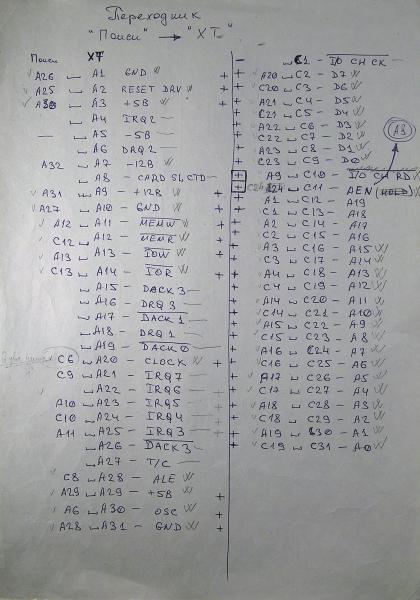 Переходник
"Поиск" → "XT"
Поиск XT
A26 A1 GND
A25 A2 RESET DRV
A30 A3 +5В
A4 IRQ2
— A5 -5В
A6 DRQ2
A32 A7 -12В
A8 - CARD SLCTD
A31 A9 - +12В
A27 A10 - GND
A12 A11 - MEMW
C12 A12 - MEMR
A13 A13 - IOW
C13 A14 - IOR
A15 DACK3
A16 - DRQ3
A17 - DACK1
A18 - DRQ1
A19 - DACK0
C6 A20 - CLOCK
C9 A21 - IRQ7
A22 - IRQ6
A10 A23 - IRQ5
C10 A24 - IRQ4
A11 A25 - IRQ3
A26 - DACK3
A27 - T/C
C8 A28 - ALE
A29 A29 - +5В
A6 A30 - OSC
A28 A31 - GND
— C1 - I/O CH CK
A20 C2 - D7
C20 C3 - D6
A21 C4 - D5
C21 C5 - D4
A22 C6 - D3
C22 C7 - D2
A23 C8 - D1
C23 C9 - D0
A8
A9 C10 - I/O CH RD
C24 C11 - AEN (HOLD)
A1 C12 - A19
C1 C13 - A18
A2 C14 - A17
C2 C15 - A16
A3 C16 - A15
C3 C17 - A14
A4 C18 - A13
C4 C19 - A12
A14 C20 - A11
C14 C21 - A10
A15 C22 - A9
C15 C23 - A8
A16 C24 - A7
C16 C25 - A6
A17 C26 - A5
C17 C27 - A4
A18 C28 - A3
C18 C29 - A2
A19 C30 - A1
C19 C31 - A0